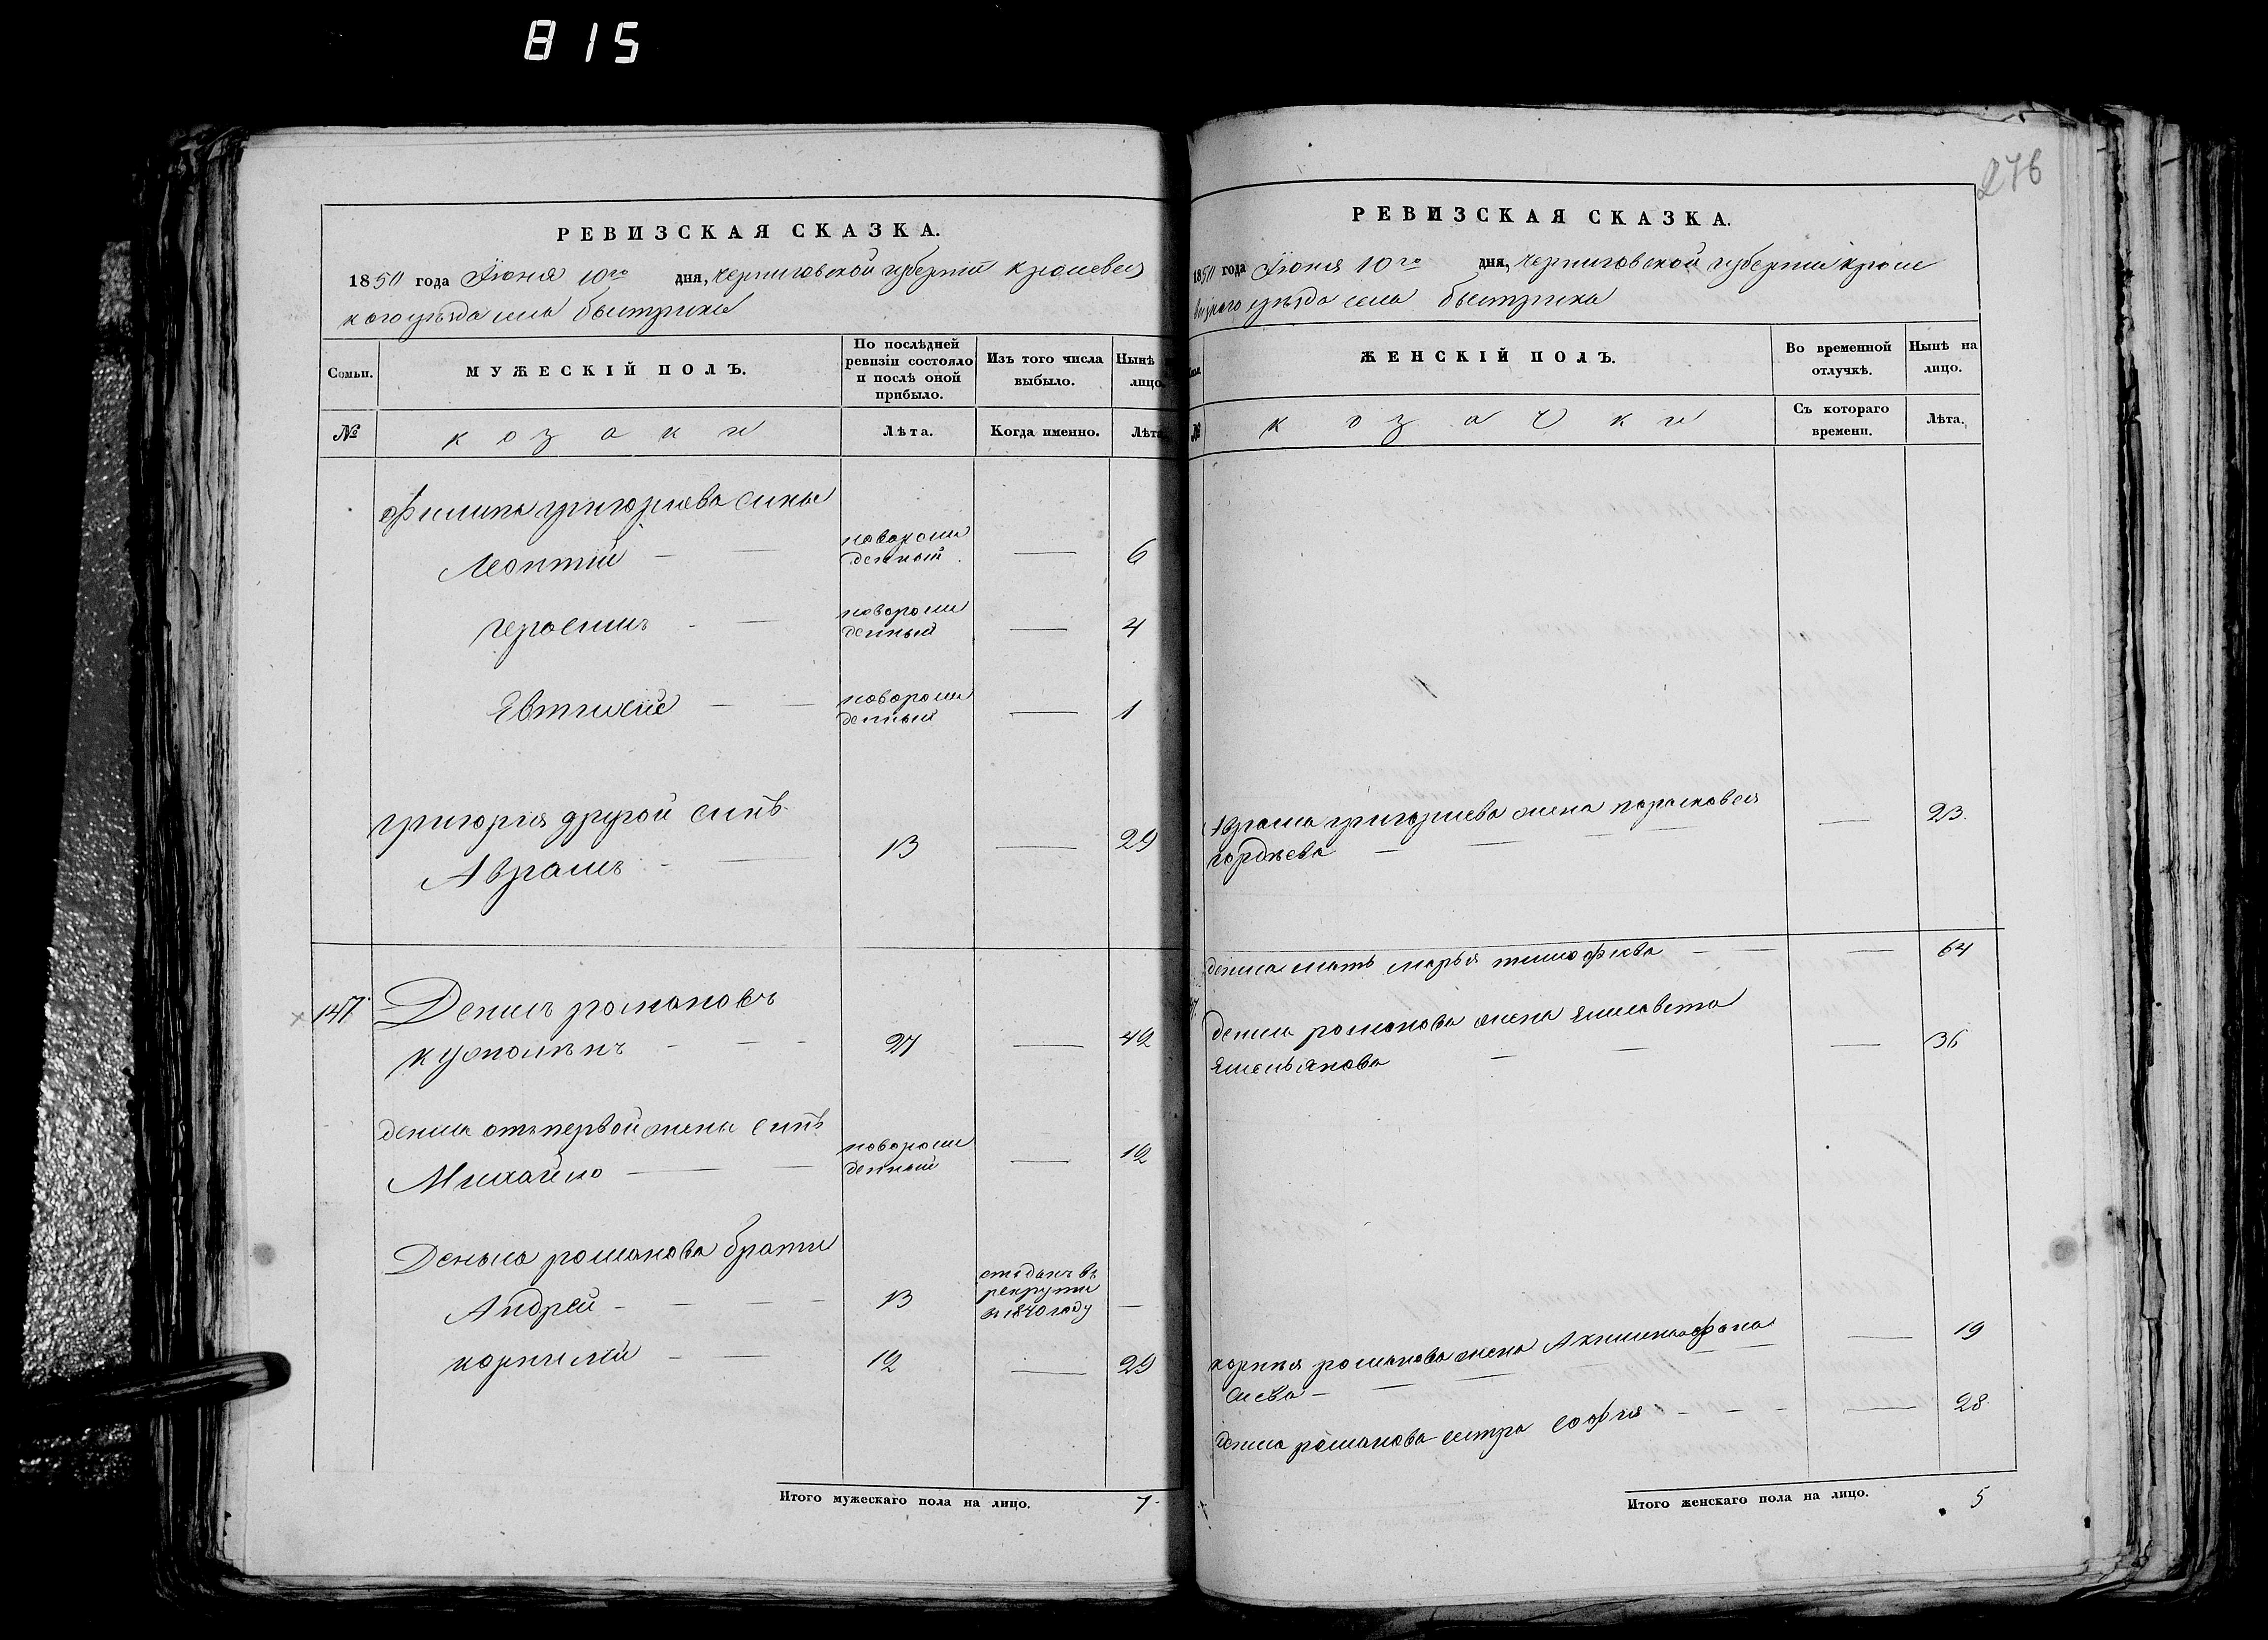 815
276
РЕВИЗСКАЯ СКАЗКА.
1850 года Іюня 10го дня, Черниговской губерніи Кролевец
кого уезда села Быстрика
Семьи.
МУЖЕСКІЙ ПОЛЪ.
По послѣдней
ревизіи состояло
и послѣ оной
прибыло.
Изъ того числа
выбыло.
Нынѣ
лицо
№
козаки
Лѣта.
Когда именно.
Лѣта
Филипа григориева сины
Леонтий — — новорож
денный — 6
герасимъ — новорож
денный — 4
Евтихий — — новорож
денный — 1
григория другой синъ
Аврамъ — 13 — 29
147 Денисъ романовъ
— — — 27 — 42
дениса отъ первой жены синъ
Михайло — — новорож
денный — 12
Дениса романова брати
Андрей — — — — 13 отъданъ въ
рекруты
въ 1840 году —
корнилий — — 12 — 29
Итого мужескаго пола на лицо. 7
РЕВИЗСКАЯ СКАЗКА.
1850 года Іюня 10го дня, Черниговской губерніи Кроле
вецкого уезда села Быстрика
ЖЕНСКІЙ ПОЛЪ.
Во временной
отлучкѣ.
Нынѣ на
лицо.
№
козачки
Съ котораго
времени.
Лѣта.
Аврама григориева жена парасковея
гордѣева — — — 23
дениса мать марья тимофѣева — — — 64
дениса романова жена Елисавета
Емельянова — — — 36
корнія романова жена Акилина афона
сиева — — — — 19
дениса романова сестра софия — — — — 28
Итого женскаго пола на лицо. 5